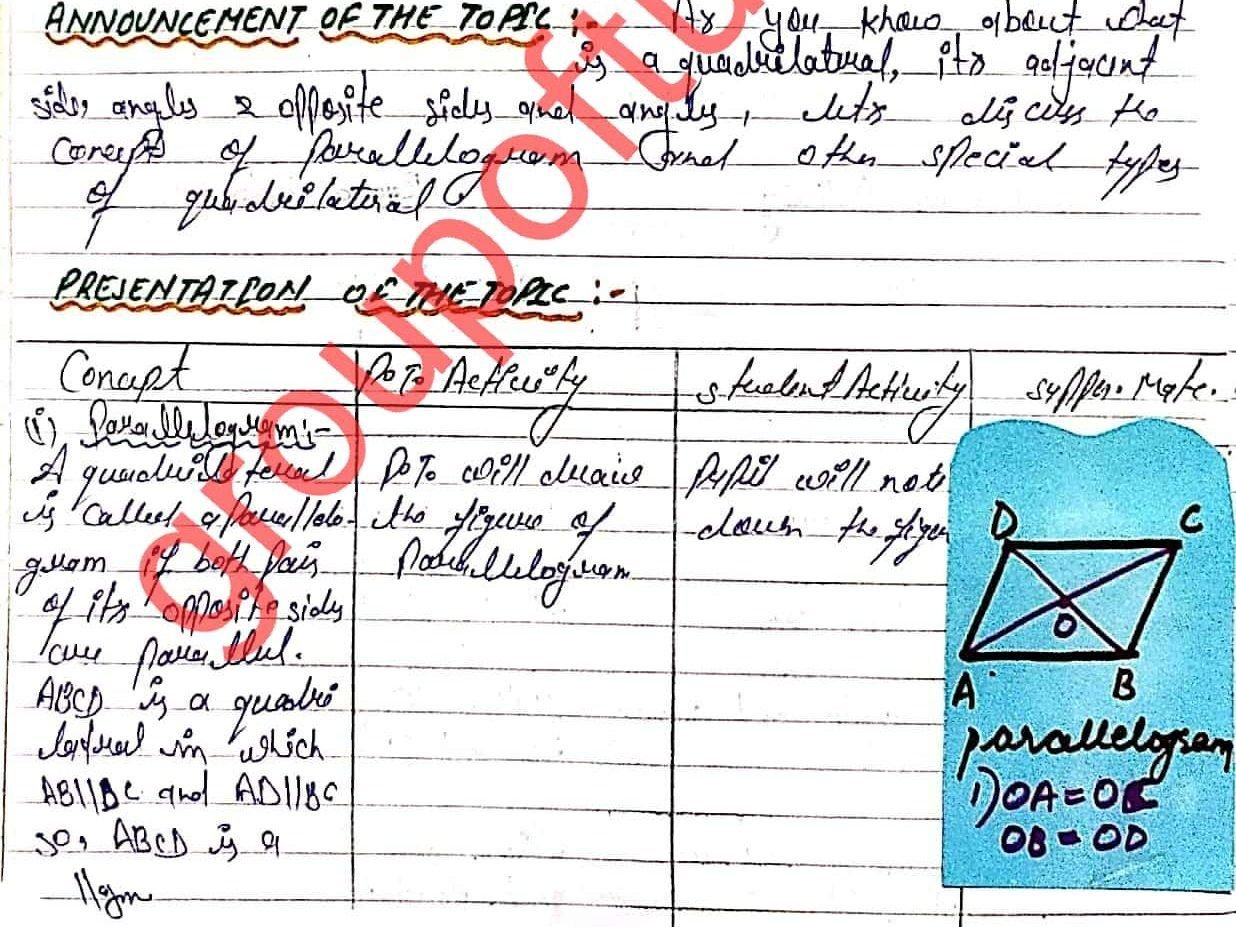 ANNOUNCEMENT OF THE TOPIC :- As you know about what
is a quadrilatural, its adjacent
sides angles & opposite sides and angles, lets discuss the
Concept of Parallelogram and other special types
of quadrilateral
PRESENTATION OF THE TOPIC :-
Concept
(i) Parallelogram:-
A quadrilateral
is called a parallelo-
gram if both pair
of its opposite sides
are parallel.
ABCD is a quadri
lateral in which
AB||DC and AD||BC
so, ABCD is a
||gm
P.T. Activity
P.T. will draw
the figure of
Parallelogram
Student Activity
Pupil will note
down the figure
Suppor. Mate.
D C
O
A B
parallelogram
i) OA = OC
OB = OD
groupoftu